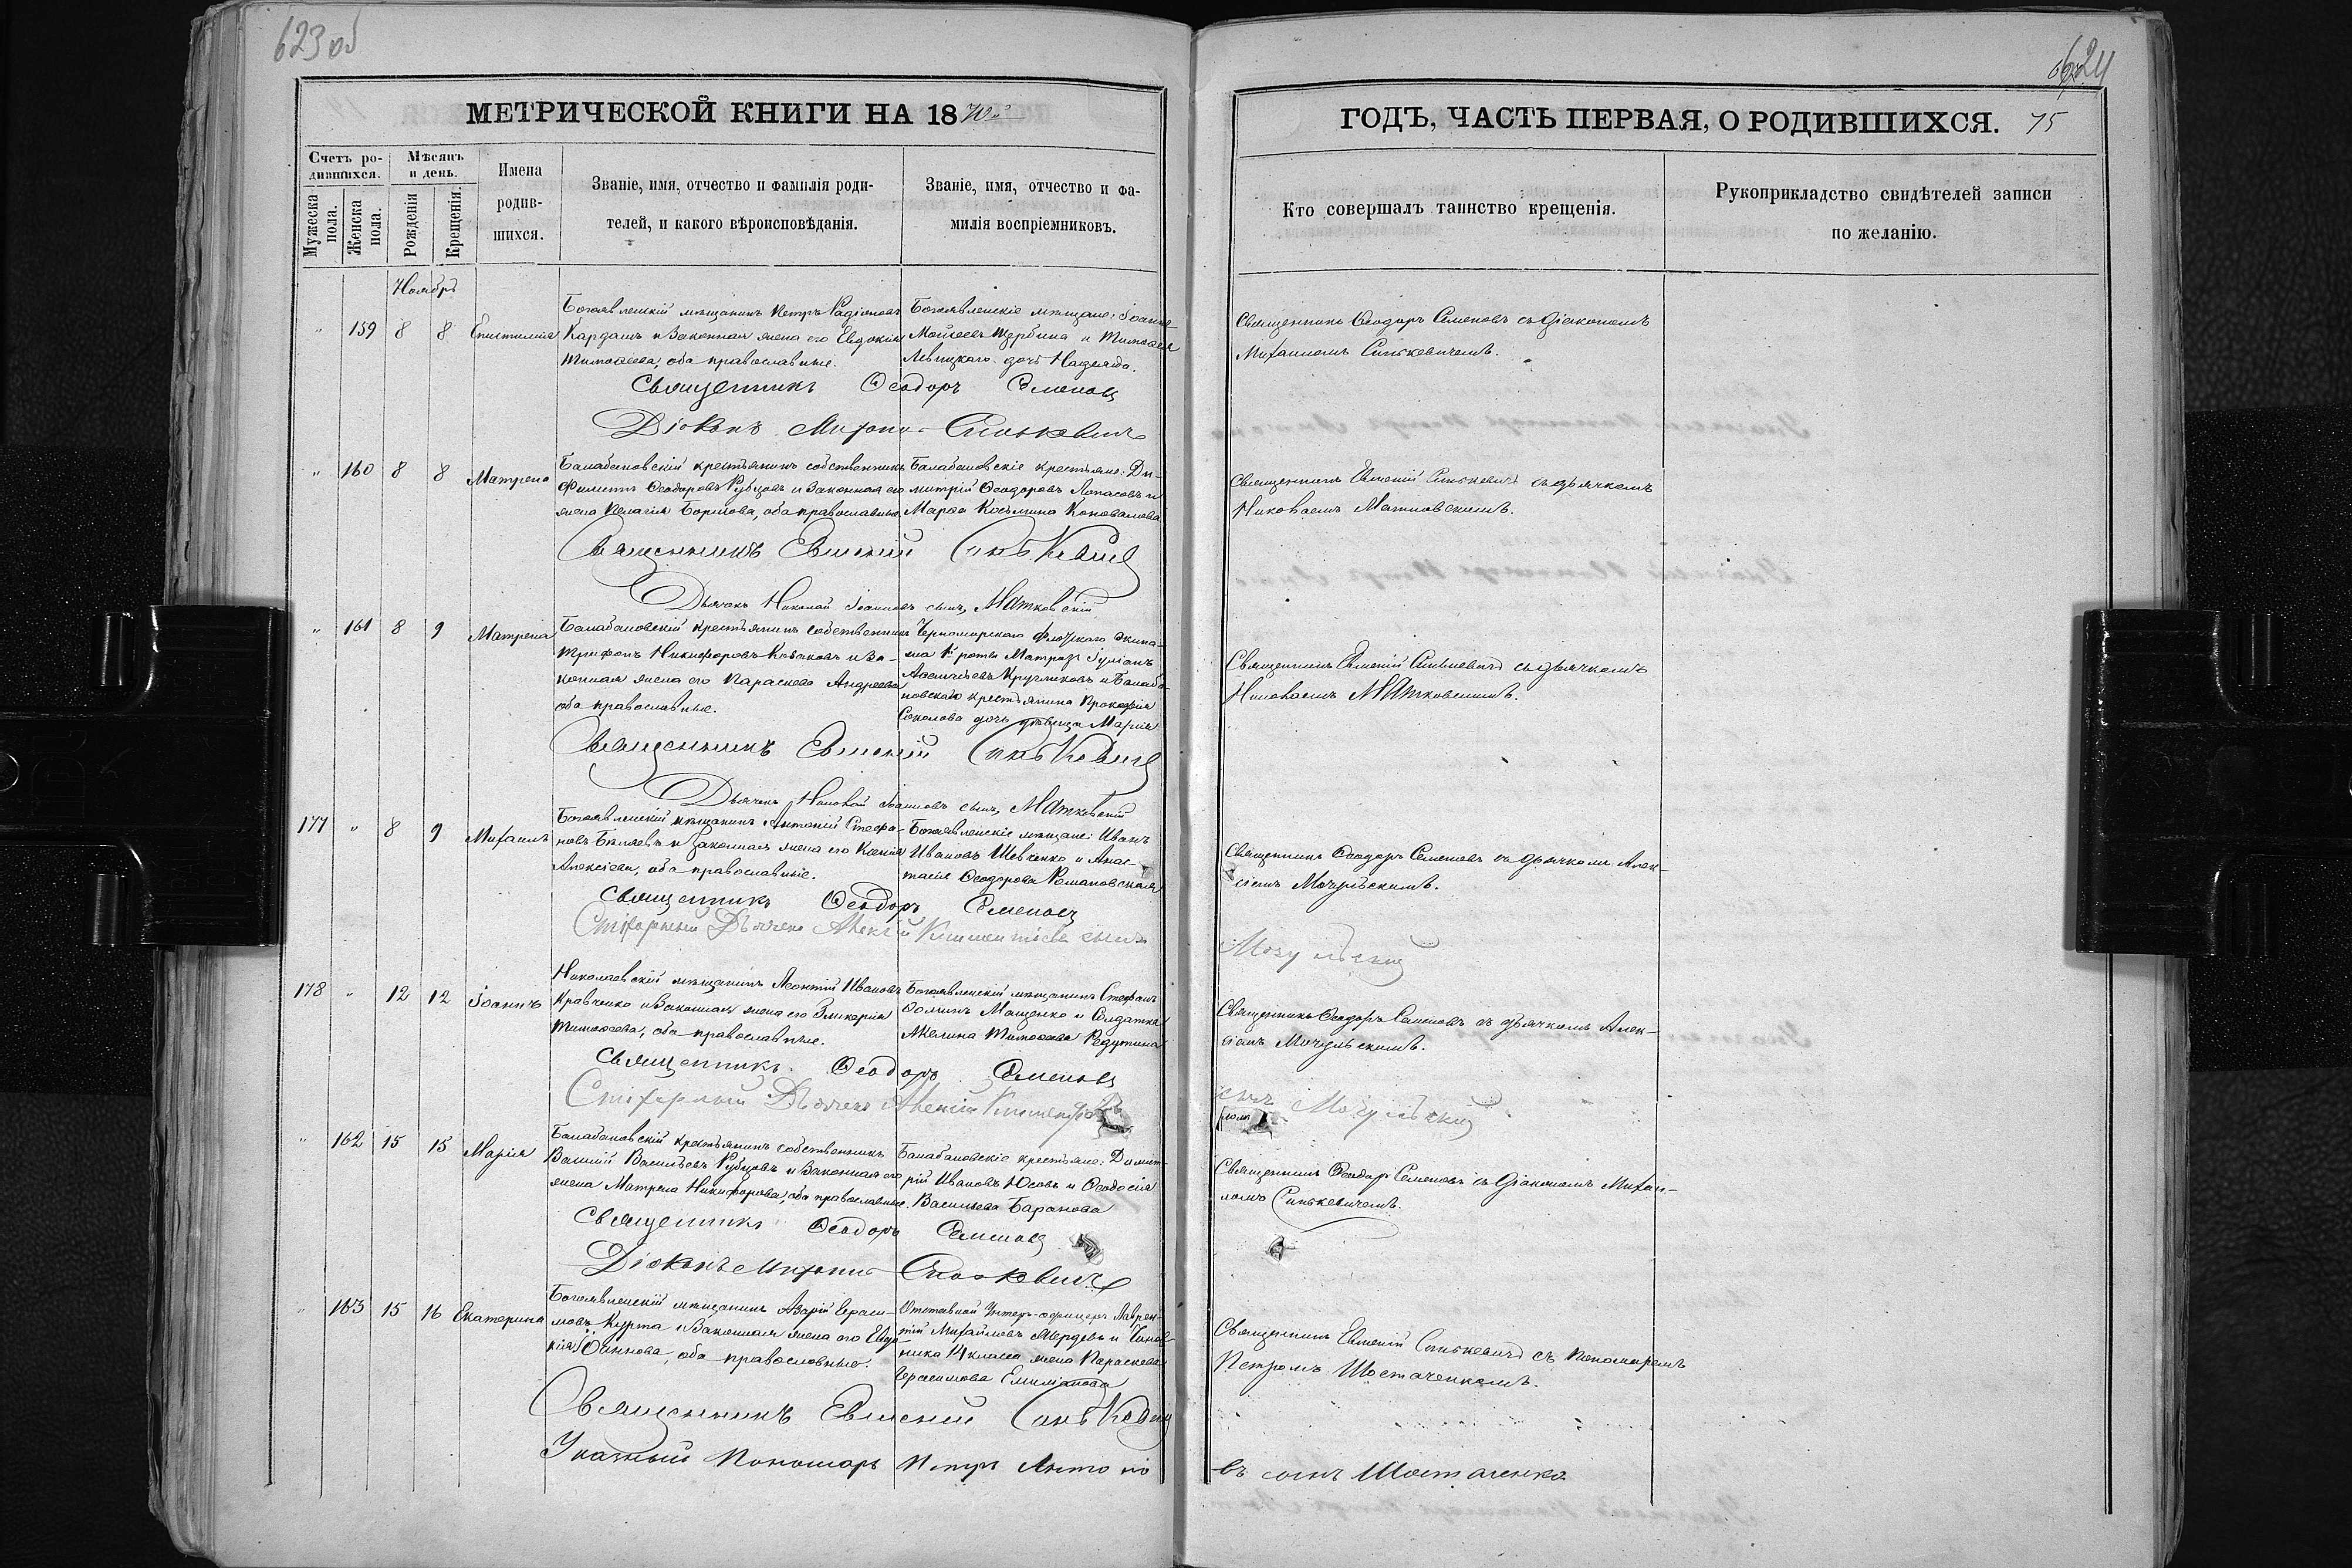 623 об
624
МЕТРИЧЕСКОЙ КНИГИ НА 1870й
ГОДЪ, ЧАСТЬ ПЕРВАЯ, О РОДИВШИХСЯ. 75
Счетъ ро-
дившихся.
Мѣсяцъ
и день.
Мужеска
пола.
Женска
пола.
Рожденія
Крещенія.
Имена
родив-
шихся.
Званіе, имя, отчество и фамилія роди-
телей, и какого вѣроисповѣданія.
Званіе, имя, отчество и фа-
милія воспріемниковъ.
Кто совершалъ таинство крещенія.
Рукоприкладство свидѣтелей записи
по желанію.
Ноябрь
" 159 8 8 Епистимія
Богоявленскій мѣщанинъ Петръ Радіоновъ
Кардашъ и Законная жена его Евдокія
Тимоѳеева, оба православные.
Богоявленскіе мѣщане: Іоаннъ
Мойсеевъ Щербина и Тимоѳея
Левицкаго дочь Надежда.
Священникъ Ѳеодоръ Семеновъ съ Діакономъ
Михаиломъ Синькевичемъ.
Священникъ Ѳеодоръ Семеновъ
Діаконъ Михаилъ Синькевичъ
" 160 8 8 Матрена
Балабановскій крестьянинъ собственникъ
Филиппъ Ѳеодоровъ Рубцовъ и Законная его
жена Пелагія Борисова, оба православные.
Балабановскіе крестьяне: Ди-
митрій Ѳеодоровъ Лопасовъ и
Марѳа Косьмина Коновалова
Священникъ Евгеній Синькевичъ съ дьячкомъ
Николаемъ Матковскимъ.
Священникъ Евгеній Синькевичъ
Дьячокъ Николай Іоанновъ сынъ Матковскій
" 161 8 9 Матрена
Балабановскій крестьянинъ собственникъ
Трифонъ Никифоровъ Козаковъ и За-
конная жена его Параскева Андреева
оба православные.
Черноморскаго флотскаго экипа-
жа 1й роты Матрозъ Іуліанъ
Аѳанасьевъ Кругликовъ и Балаба-
новскаго крестьянина Прокофія
Соколова дочь девица Марія
Священникъ Евгеній Синькевичъ съ дьячкомъ
Николаемъ Матковскимъ.
Священникъ Евгеній Синькевичъ
Дьячокъ Николай Іоанновъ сынъ Матковскій
177 " 8 9 Михаилъ
Богоявленскій мѣщанинъ Антоній Стефа-
новъ Бѣляевъ и Законная жена его Ксенія
Алексіева, оба православные.
Богоявленскіе мѣщане: Иванъ
Ивановъ Шевченко и Анас-
тасія Ѳеодорова Романовская
Священникъ Ѳеодоръ Семеновъ съ дьячкомъ Алек-
сіемъ Мочульскимъ.
Священникъ Ѳеодоръ Семеновъ
Стихарный Дьячекъ Алексій Климентіевъ сынъ
Мочульскій
178 " 12 12 Іоаннъ
Николаевскій мѣщанинъ Леонтій Ивановъ
Кравченко и Законная жена его Гликерія
Тимоѳеева, оба православные.
Богоявленскій мѣщанинъ Стефанъ
Ѳоминъ Мащенко и Солдатка
Акелина Тимоѳеева Редутина
Священникъ Ѳеодоръ Семеновъ съ дьячкомъ Алек-
сіемъ Мочульскимъ.
Священникъ Ѳеодоръ Семеновъ
Стихарный Дьячекъ Алексій Климентіевъ
сынъ Мочульскій
" 162 15 15 Марія
Балабановскій крестьянинъ собственникъ
Василій Васильевъ Рубцовъ и Законная его
жена Матрена Никифорова, оба православные.
Балабановскіе крестьяне: Димит-
рій Ивановъ Юсовъ и Ѳеодосія
Васильева Баранова
Священникъ Ѳеодоръ Семеновъ съ Діакономъ Михаи-
ломъ Синькевичемъ.
Священникъ Ѳеодоръ Семеновъ
Діаконъ Михаилъ Синькевичъ
" 163 15 16 Екатерина
Богоявленскій мѣщанинъ Азарій Гераси-
мовъ Курта и Законная жена его Евдо-
кія Іоаннова, оба православные.
Отставной Унтеръ-офицеръ Лаврен-
тій Михайловъ Мердевъ и Чинов-
ника 14 класса жена Параскева
Герасимова Емиліанова
Священникъ Евгеній Синькевичъ съ Пономаремъ
Петромъ Шостаченкомъ.
Священникъ Евгеній Синькевичъ
Указный Пономарь Петръ Антоно
въ сынъ Шостаченко